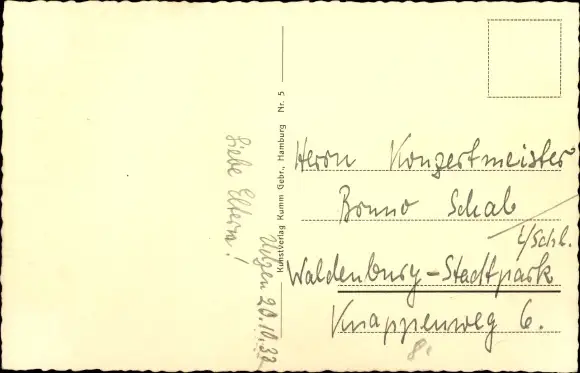 Uelzen 20.10.32
Liebe Eltern!
Kunstverlag Kumm Gebr., Hamburg Nr. 5
Herrn Konzertmeister
Bruno Schab
i/Schl.
Waldenburg-Stadtpark
Knappenweg 6.
8.